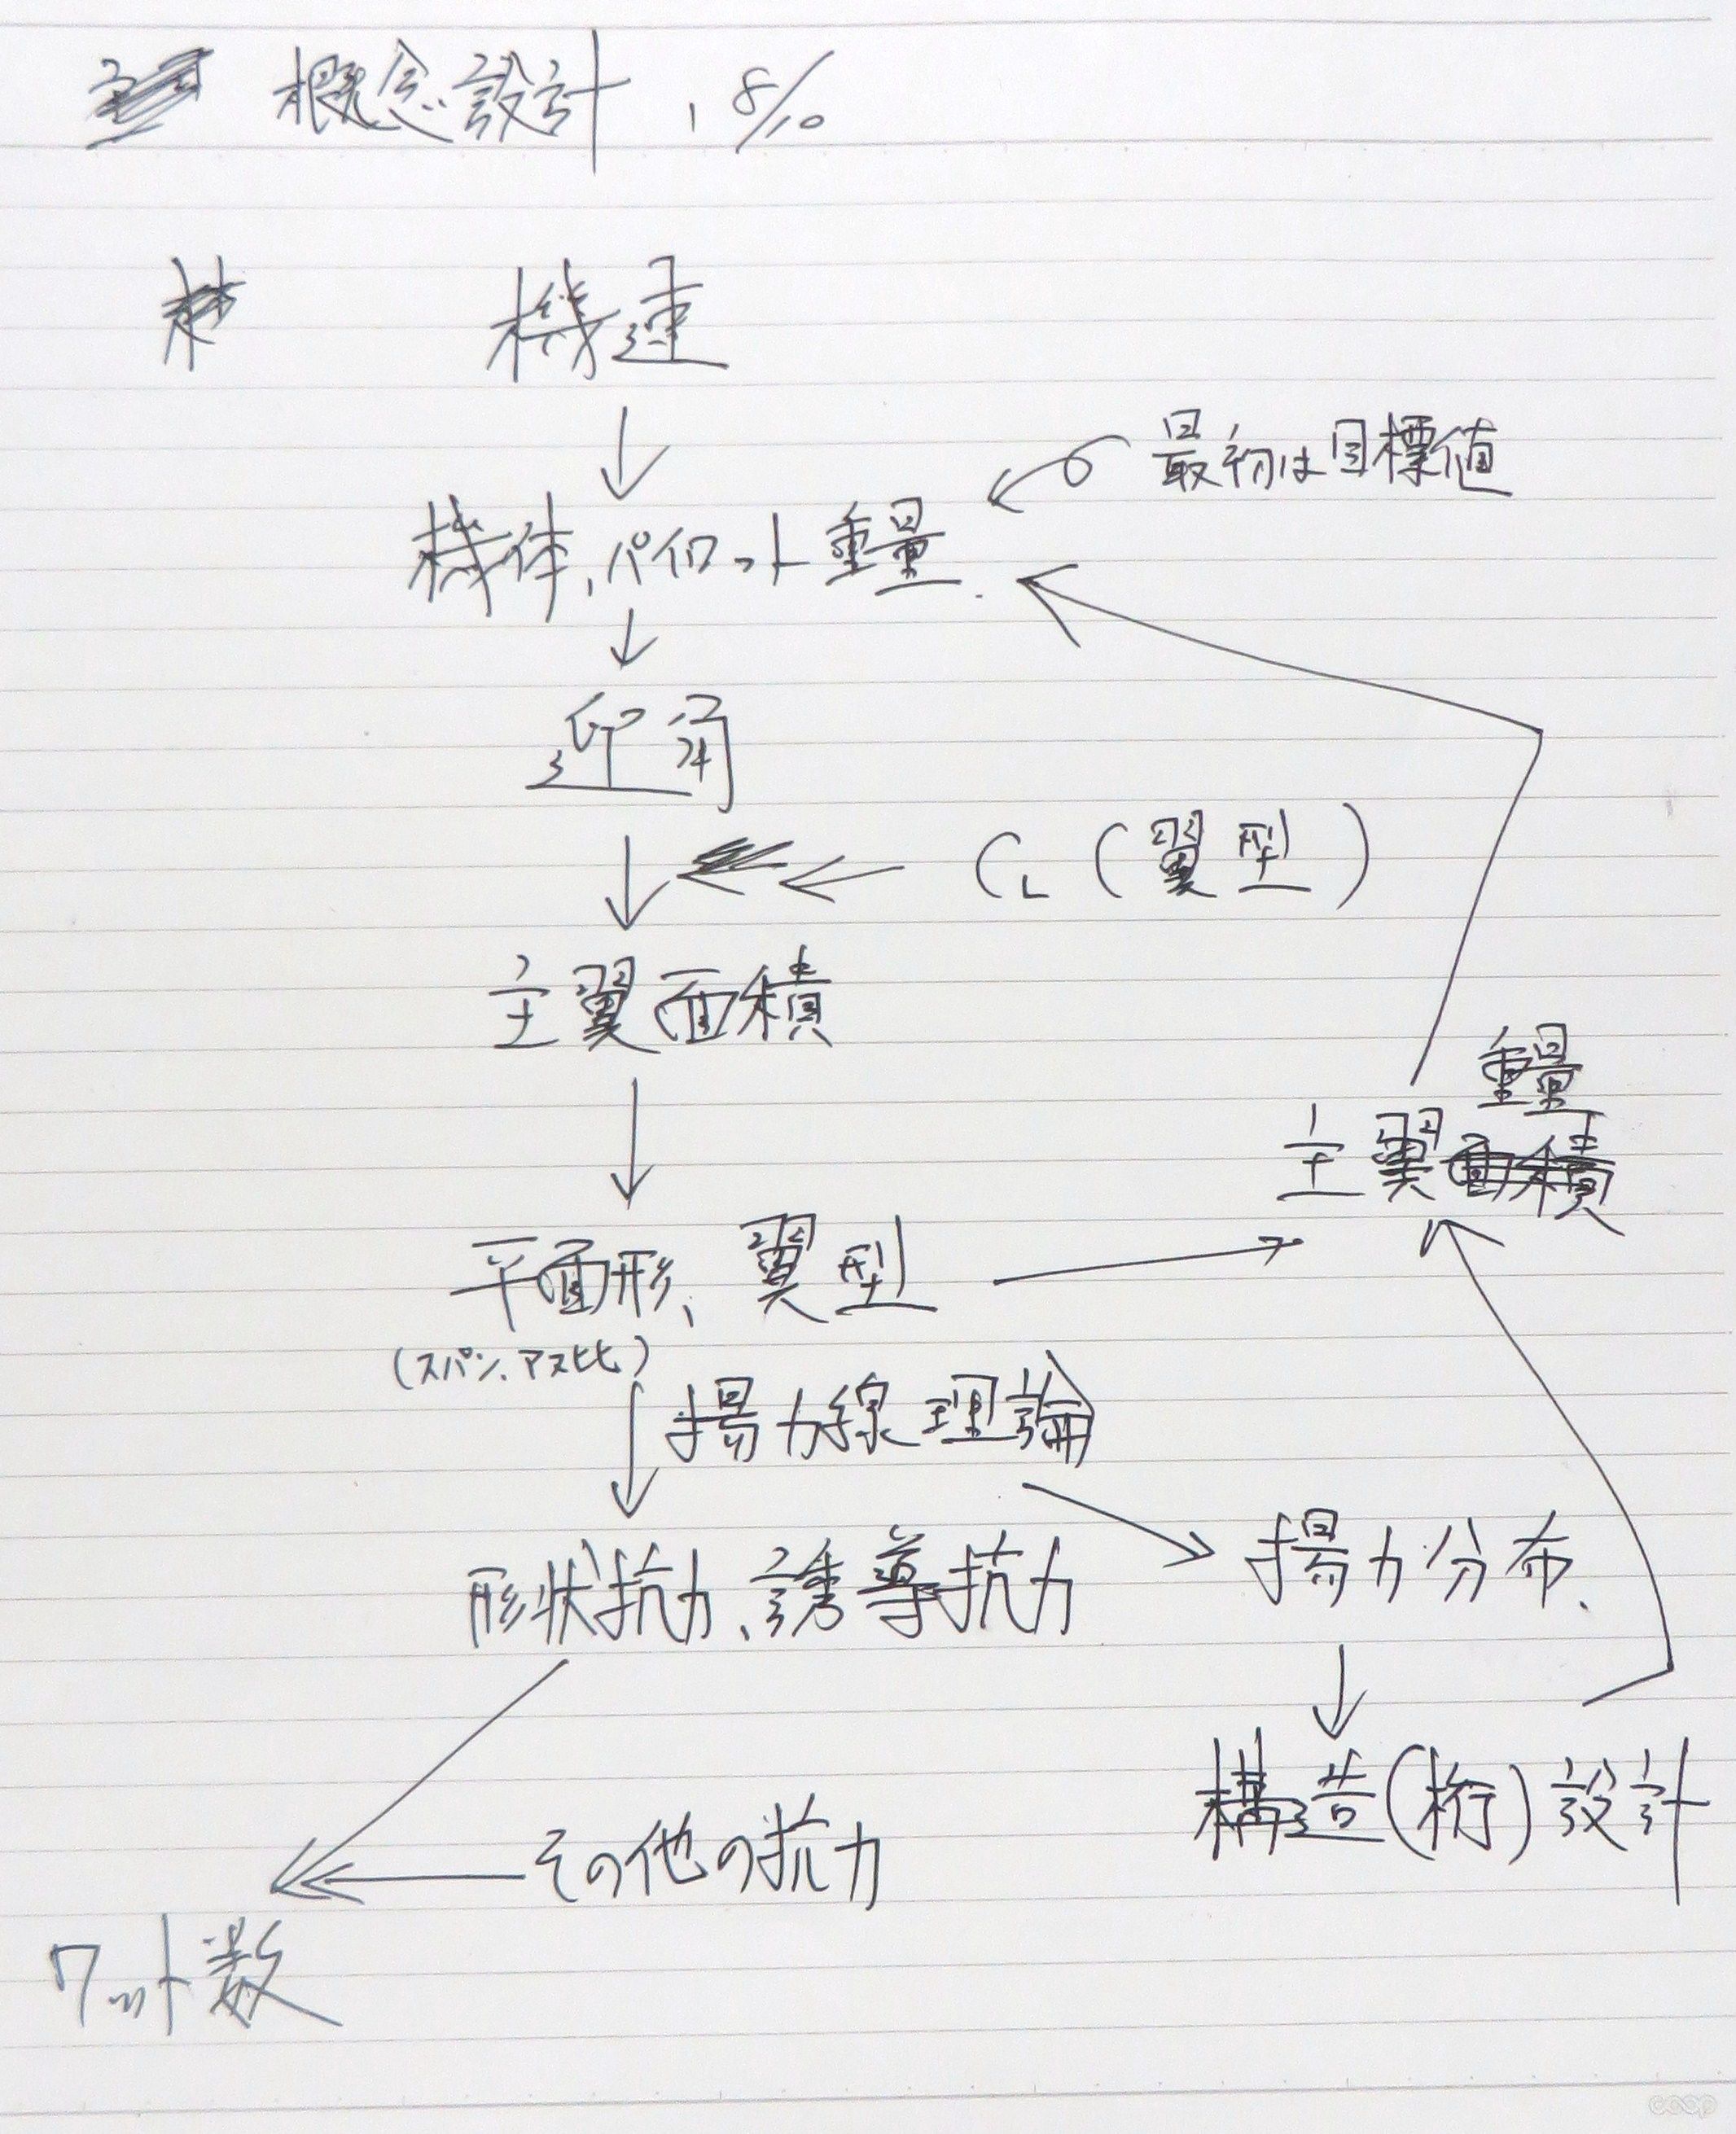 概念設計, 8/10
機速
最初は目標値
機体,パイロット重量.
迎角
CL(翼型)
主翼面積
重量
主翼面積
平面形、翼型
(スパン、アス比)
揚力線理論
揚力分布、
形状抗力、誘導抗力
構造(桁)設計
その他の抗力
ワット数
coop